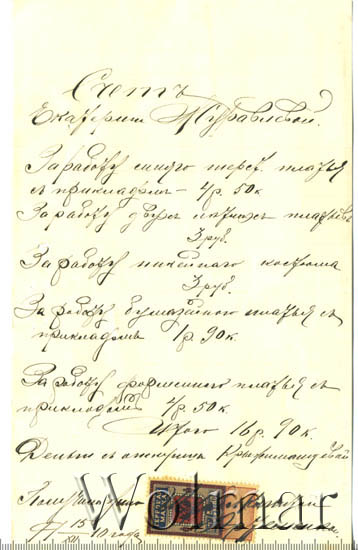 Счетъ
Екатерин Журавлевой.
За работу синяго шерст. платья
съ прикладомъ – 4р. 50к
За работу двухъ платьевъ
3 руб.
За работу костюма
3 руб.
За работу бумазейного платья съ
прикладомъ 1р. 90к.
За работу форменного платья съ
прикладомъ 4р. 50к.
Итого 16р. 90к.
Деньги съ
15
XII 10 года
МАРКА
Wolmar